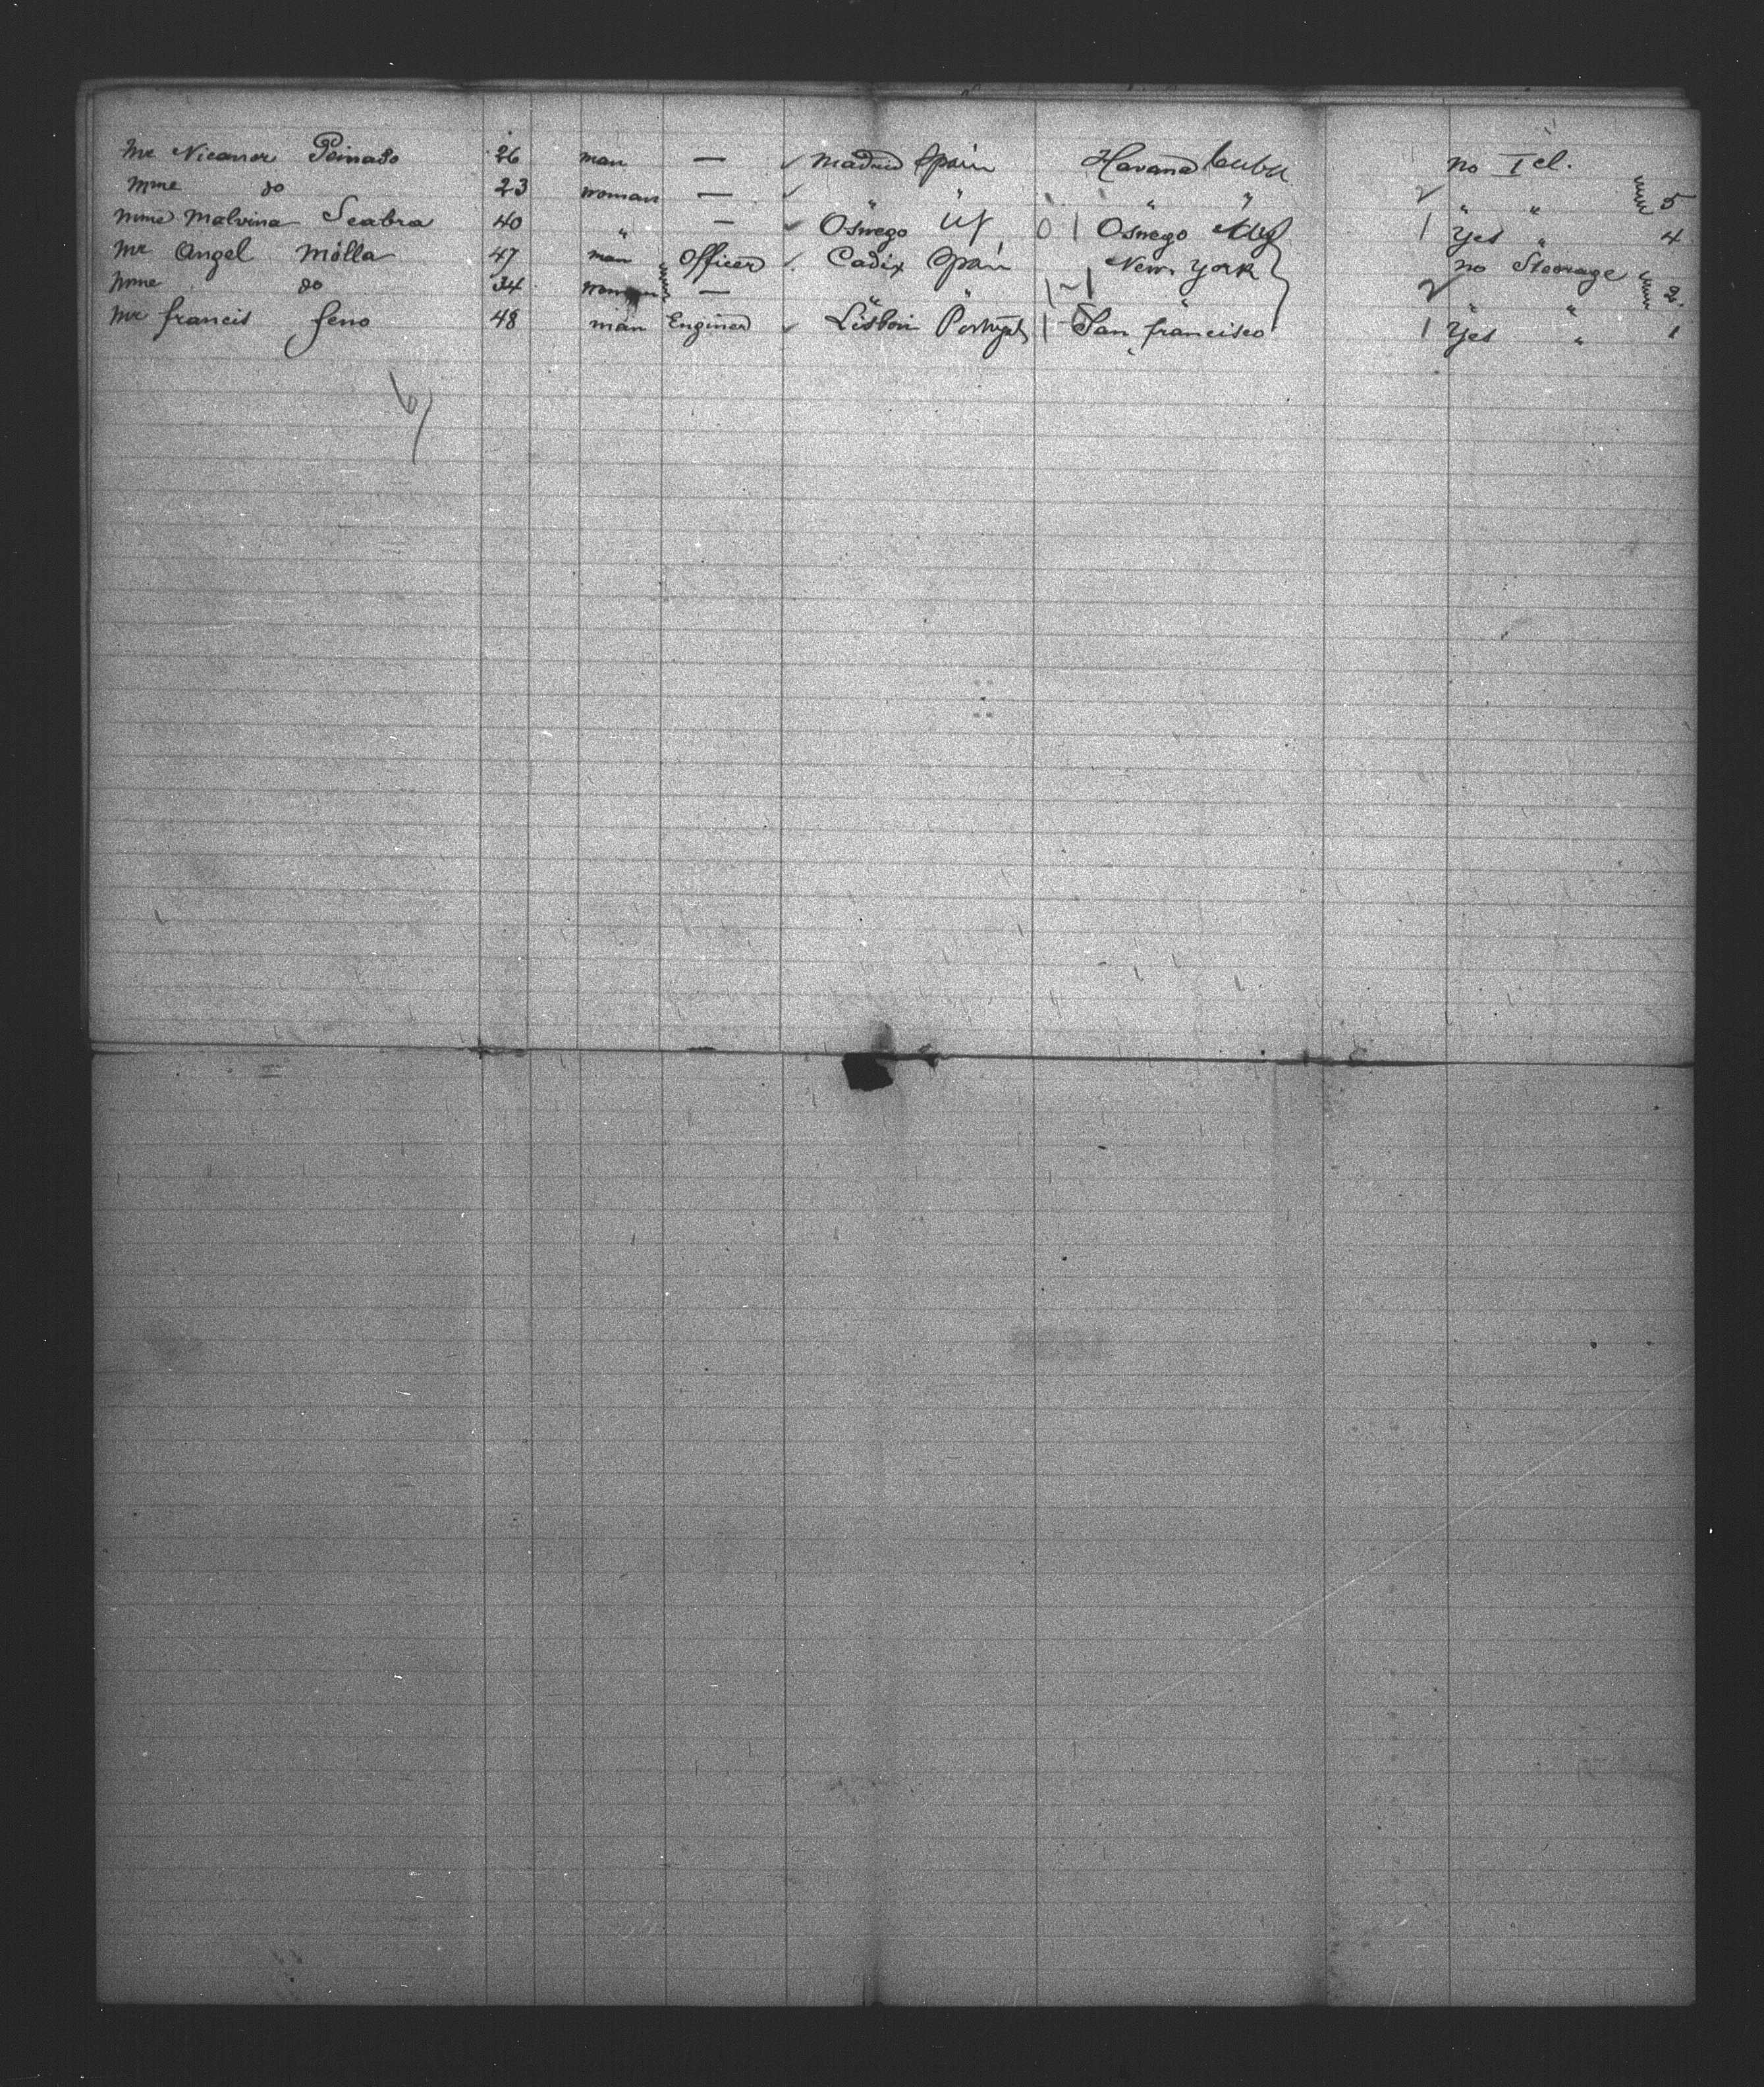 Mr Nicanor Peinado 26 man — ✓ Madrid Spain Havana Cuba no I cl.
Mme do 23 woman — ✓ " " " " 2 " " 5
Mme Malvina Seabra 40 " — ✓ Oswego 0 | Oswego 1 Yes " 4
Mr Angel Mólla 47 man Officer ✓ Cadix Spain New York no Steerage
Mme do 34 woman — " " 1 ~ 1 " 2 " " 2.
Mr francis feno 48 man Engineer ✓ Lisbon Portugal | San francisco 1 Yes " 1
6/